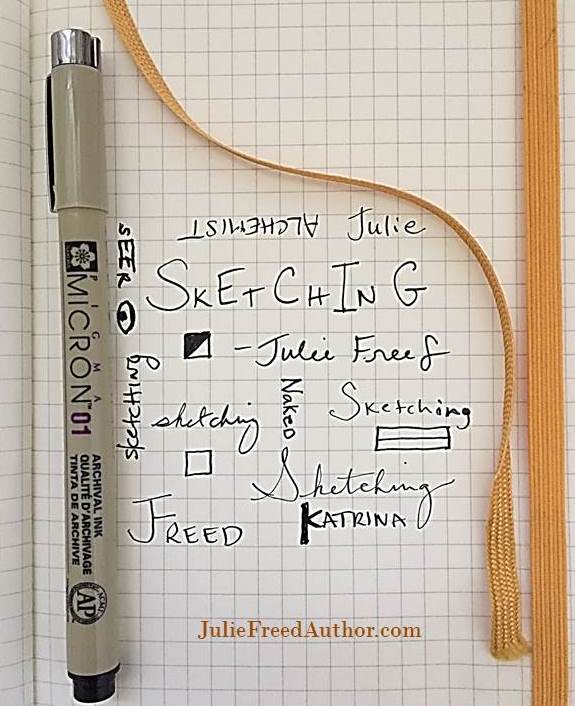 PIGMA
MICRON™ 01
ARCHIVAL INK
QUALITÉ D'ARCHIVAGE
TINTA DE ARCHIVE
AP
SEER
ALCHEMIST
Julie
SKETCHING
-Julie Freed
sketching
sketching
Naked
Sketching
Sketching
FREED
KATRINA
JulieFreedAuthor.com